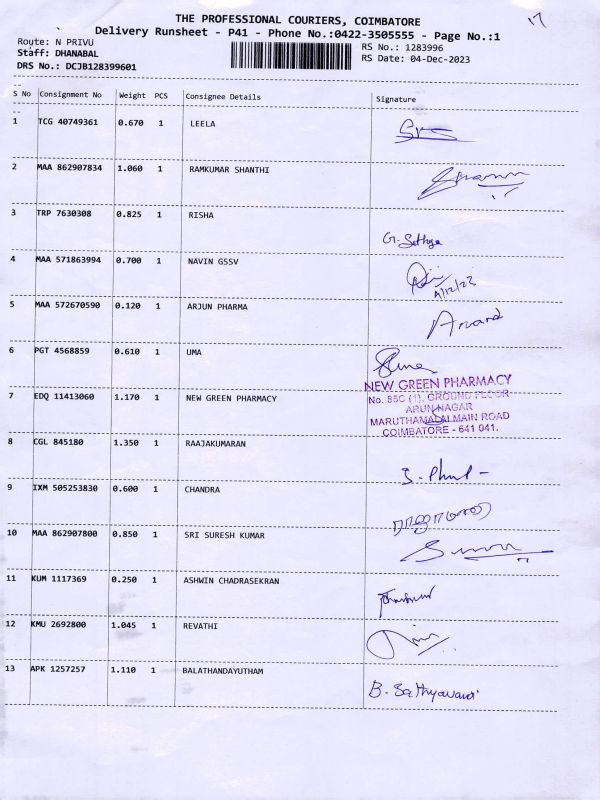 THE PROFESSIONAL COURIERS, COIMBATORE
Delivery Runsheet - P41 - Phone No.:0422-3505555 - Page No.:1
Route: N PRIVU
Staff: DHANABAL
DRS No.: DCJB128399601
RS No.: 1283996
RS Date: 04-Dec-2023
17
S No Consignment No Weight PCS Consignee Details Signature
1 TCG 40749361 0.670 1 LEELA
2 MAA 862907834 1.060 1 RAMKUMAR SHANTHI
3 TRP 7630308 0.825 1 RISHA G. Sathya
4 MAA 571863994 0.700 1 NAVIN GSSV 4/12/23
5 MAA 572670590 0.120 1 ARJUN PHARMA Anand
6 PGT 4568859 0.610 1 UMA
7 EDQ 11413060 1.170 1 NEW GREEN PHARMACY
NEW GREEN PHARMACY
No. 85C (1), GROUND FLOOR
ARUN NAGAR
MARUTHAMALAI MAIN ROAD
COIMBATORE - 641 041.
8 CGL 845180 1.350 1 RAAJAKUMARAN
9 IXM 505253830 0.600 1 CHANDRA
10 MAA 862907800 0.850 1 SRI SURESH KUMAR
11 KUM 1117369 0.250 1 ASHWIN CHADRASEKRAN
12 KMU 2692800 1.045 1 REVATHI
13 APK 1257257 1.110 1 BALATHANDAYUTHAM B. Sathyavani